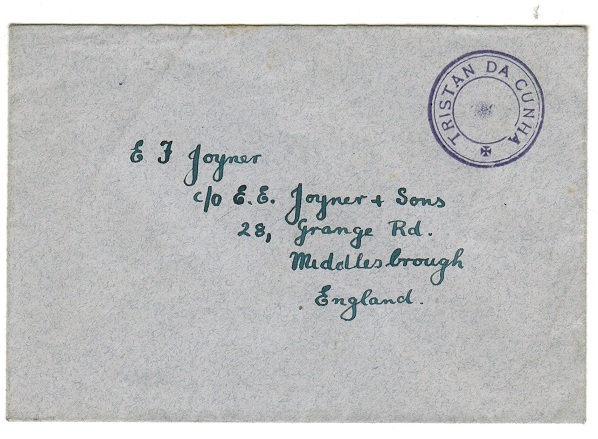 TRISTAN DA CUNHA
E F Joyner
c/o E. E. Joyner + Sons
28, Grange Rd.
Middlesbrough
England.